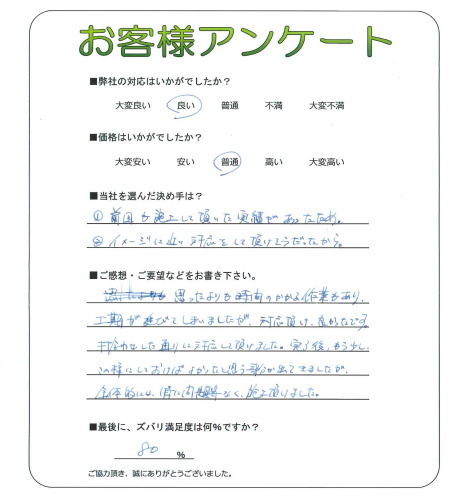 お客様アンケート
■弊社の対応はいかがでしたか？
大変良い 良い 普通 不満 大変不満
■価格はいかがでしたか？
大変安い 安い 普通 高い 大変高い
■当社を選んだ決め手は？
① 前回も施工して頂いた実績があったため。
② イメージに近い対応をして頂けそうだったから。
■ご感想・ご要望などをお書き下さい。
思ったよりも時間のかかる作業もあり、
工期が延びてしまいましたが、対応頂け、良かったです。
打合せした通りに対応して頂けました。完了後、もう少し、
この様にしておけばよかったと思う部分が出てきましたが、
全体的には、特に問題なく、施工頂けました。
■最後に、ズバリ満足度は何％ですか？
80 ％
ご協力頂き、誠にありがとうございました。